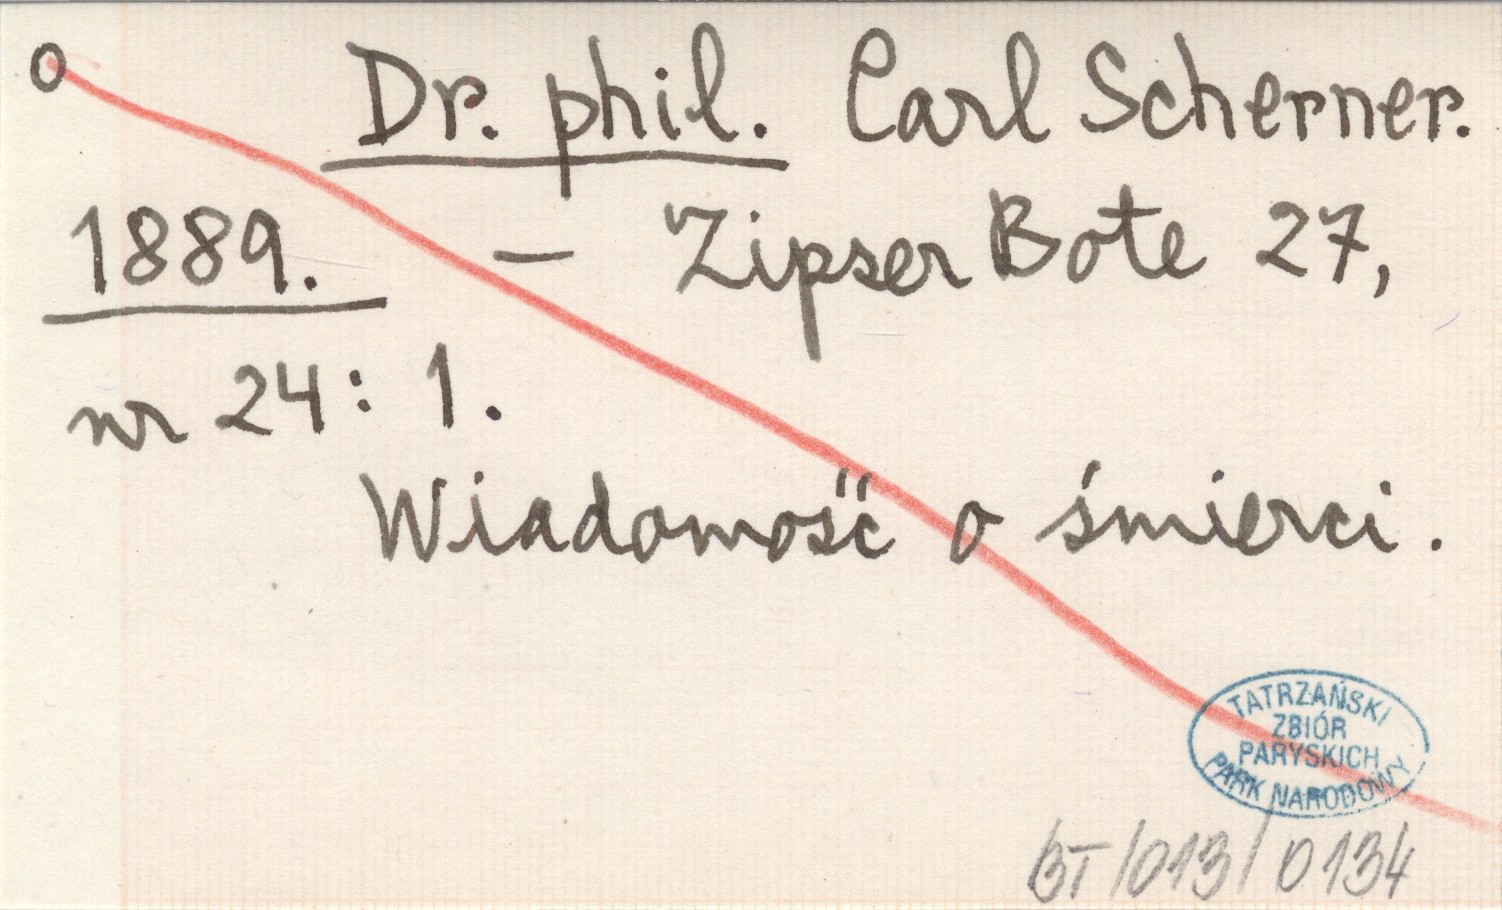 o Dr. phil. Carl Scherner.
1889. — Zipser Bote 27,
nr 24: 1.
Wiadomość o śmierci.
TATRZAŃSKI
ZBIÓR
PARYSKICH
PARK NARODOWY
BT/013/0134